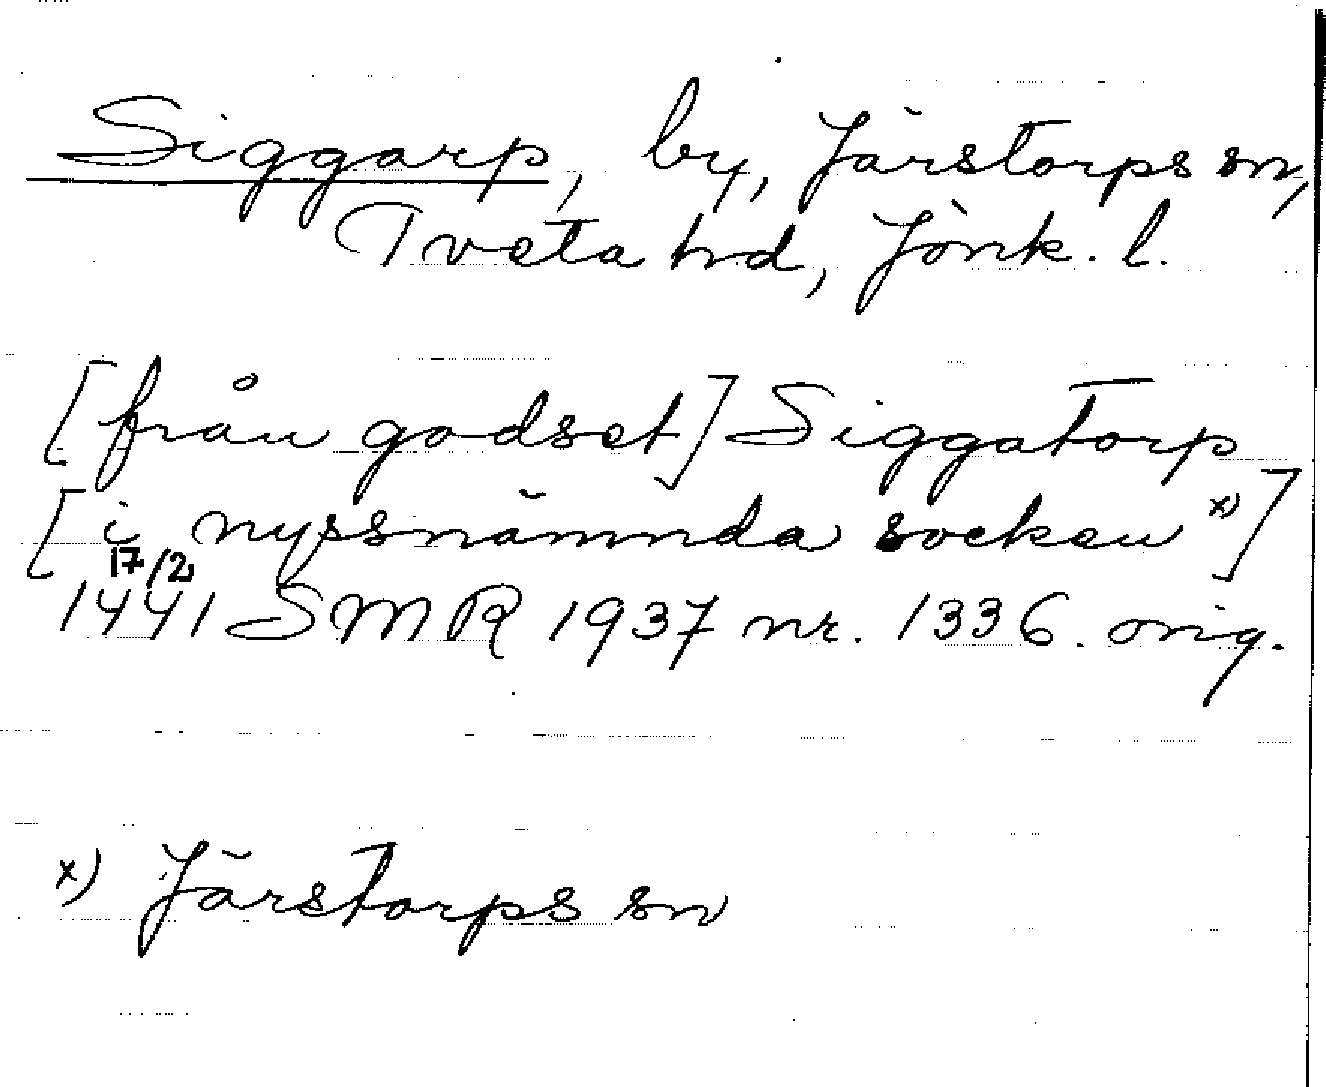 Siggarp, by, Järstorps sn,
Tveta hd, Jönk. l.
[från godset] Siggatorp
[i nyssnämnda socken x)]
17/2
1441 SMR 1937 nr. 1336. orig.
x) Järstorps sn